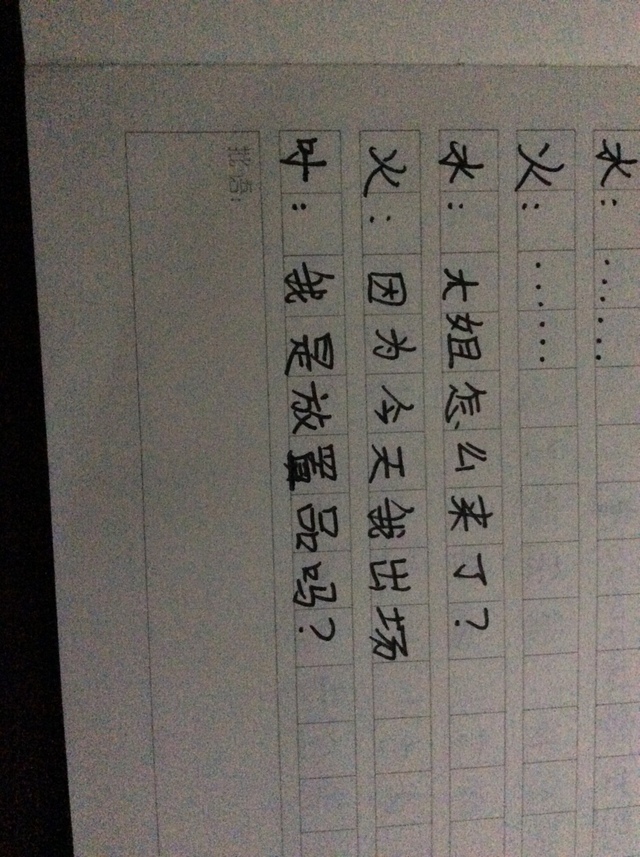 水：……
火：……
水：大姐怎么来了？
火：因为今天我出场
叶：我是放置品吗？
批语：